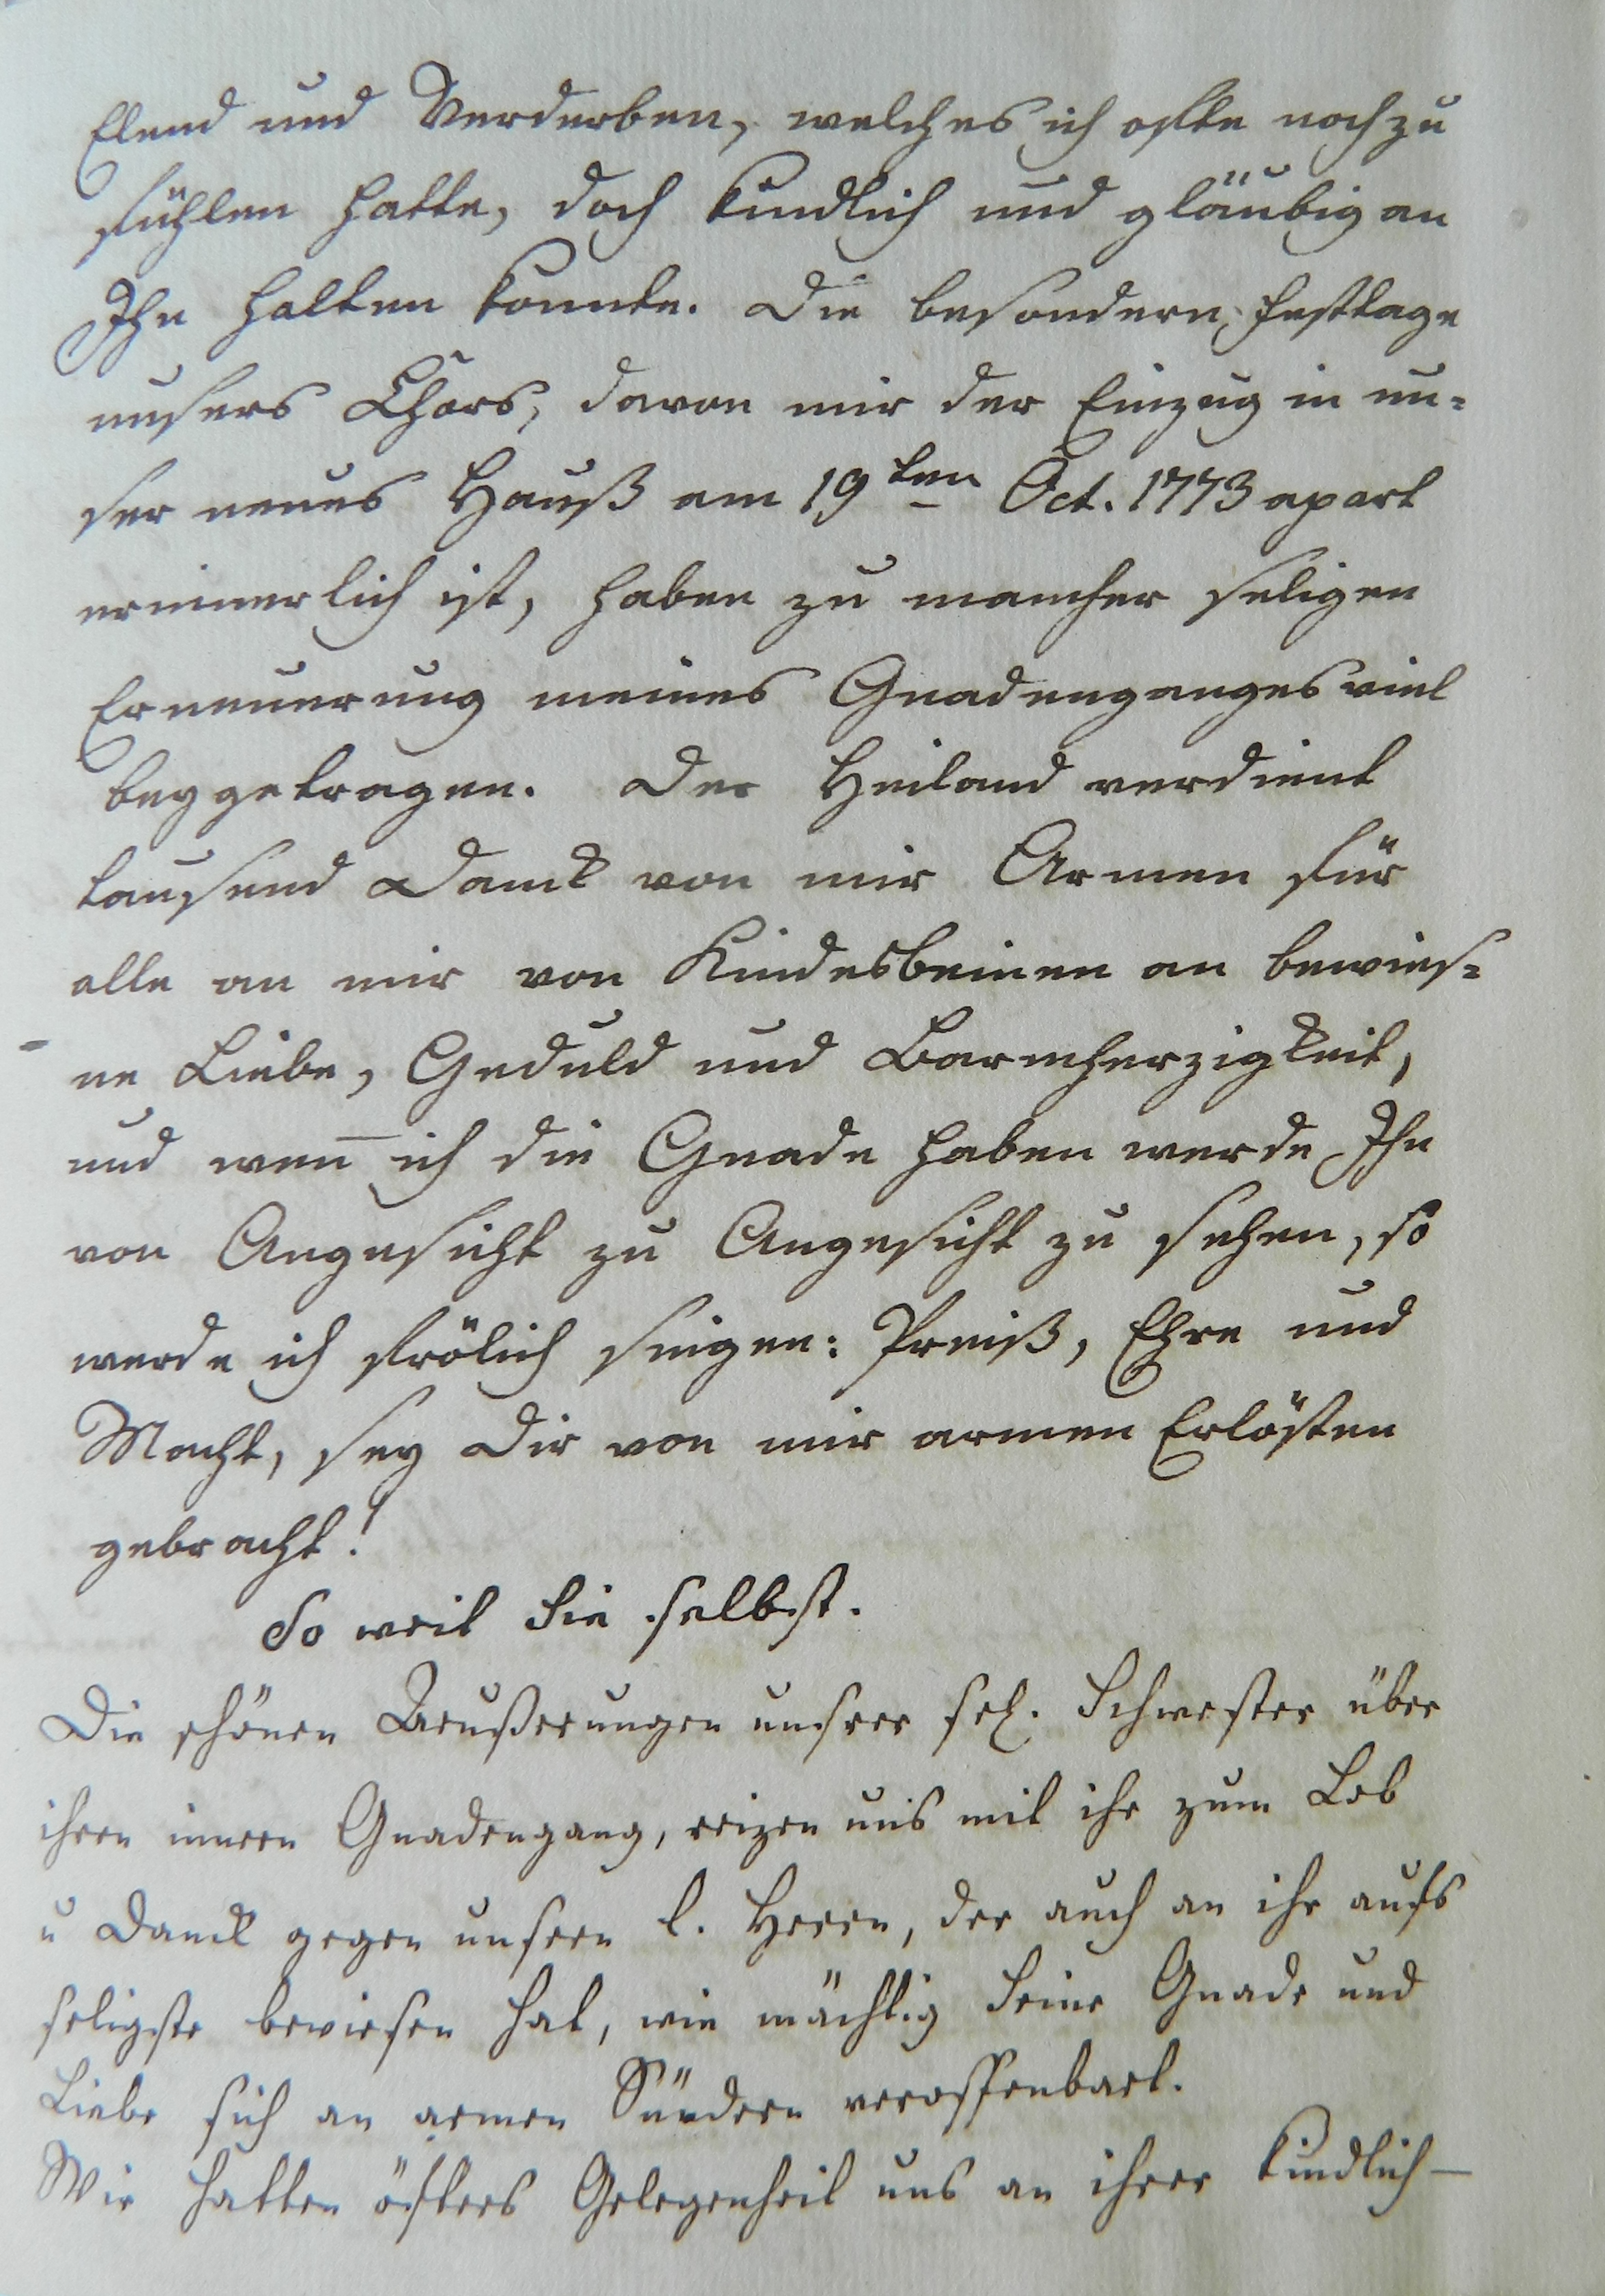 Elend und Verderben, welches ich ofte noch zu
fühlen hatte, doch kindlich und gläubig an
Ihn halten konnte. Die besondern Festtage
unsers Chors, davon mir der Einzug in un=
ser neues Hauß am 19ten Oct. 1773 apart
erinnerlich ist, haben zu mancher seligen
Erneuerung meines Gnadenganges viel
beygetragen. Der Heiland verdient
tausend Danck von mir Armen für
alle an mir von Kindesbeinen an bewies=
ne Liebe, Geduld und Barmherzigkeit,
und wen̄ ich die Gnade haben werde Ihn
von Angesicht zu Angesicht zu sehen, so
werde ich frölich singen: Preiß, Ehre und
Macht, sey Dir von mir armen Erlösten
gebracht!
So weit Sie selbst.
Die schönen Aeußerungen unsrer sel. Schwester über
ihren innern Gnadengang, reizen uns mit ihr zum Lob
u Danck gegen unsern l. Herrn, der auch an ihr aufs
seligste bewiesen hat, wie mächtig Seine Gnade und
Liebe sich an armen Sündern veroffenbart.
Wir hatten öfters Gelegenheit uns an ihrer kindlich-